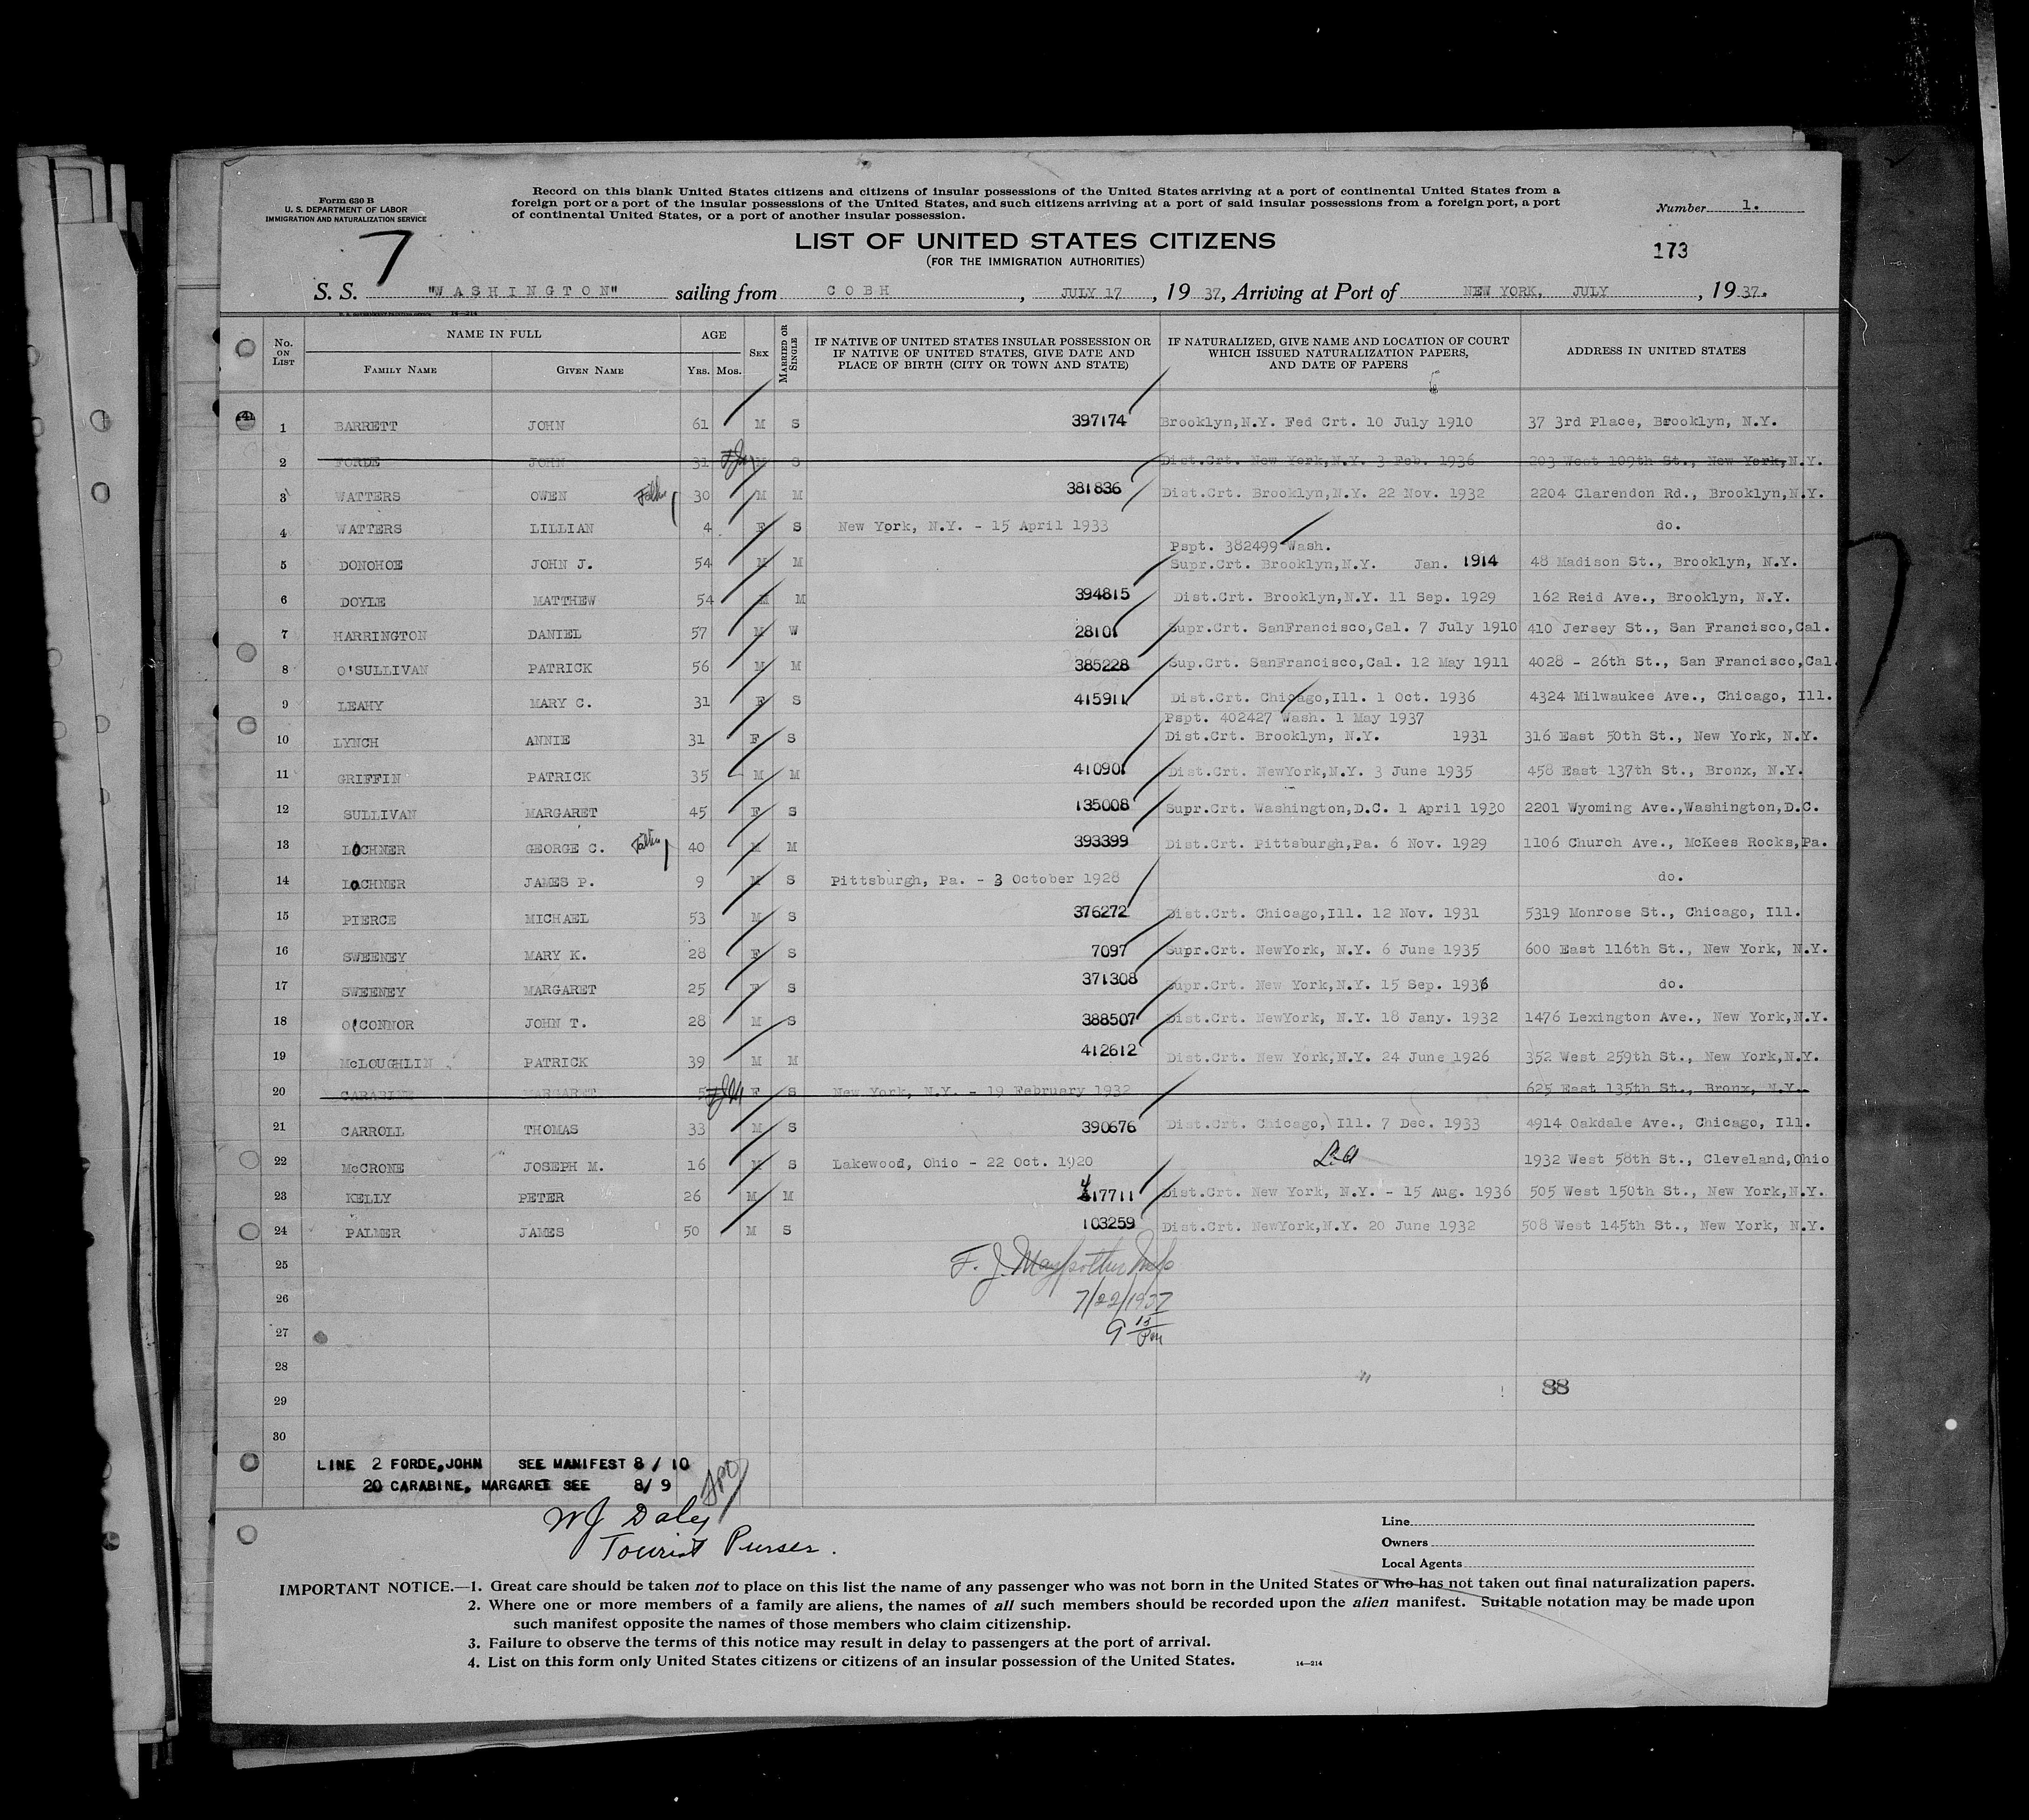 Form 630 B
U. S. DEPARTMENT OF LABOR
IMMIGRATION AND NATURALIZATION SERVICE
Record on this blank United States citizens and citizens of insular possessions of the United States arriving at a port of continental United States from a
foreign port or a port of the insular possessions of the United States, and such citizens arriving at a port of said insular possessions from a foreign port, a port
of continental United States, or a port of another insular possession.
Number 1.
7
LIST OF UNITED STATES CITIZENS
(FOR THE IMMIGRATION AUTHORITIES)
173
S. S. "WASHINGTON" sailing from COBH, JULY 17, 19 37, Arriving at Port of NEW YORK, JULY, 19 37.
No. ON LIST
NAME IN FULL
FAMILY NAME GIVEN NAME
AGE
YRS. MOS.
SEX
MARRIED OR SINGLE
IF NATIVE OF UNITED STATES INSULAR POSSESSION OR
IF NATIVE OF UNITED STATES, GIVE DATE AND
PLACE OF BIRTH (CITY OR TOWN AND STATE)
IF NATURALIZED, GIVE NAME AND LOCATION OF COURT
WHICH ISSUED NATURALIZATION PAPERS,
AND DATE OF PAPERS
ADDRESS IN UNITED STATES
1 BARRETT JOHN 61 M S 397174 Brooklyn,N.Y. Fed Crt. 10 July 1910 37 3rd Place, Brooklyn, N.Y.
2 FORDE JOHN 31 M S Dist.Crt. New York,N.Y. 3 Feb. 1936 203 West 109th St., New York,N.Y.
3 WATTERS OWEN Father 30 M M 381836 Dist.Crt. Brooklyn,N.Y. 22 Nov. 1932 2204 Clarendon Rd., Brooklyn,N.Y.
4 WATTERS LILLIAN 4 F S New York, N.Y. - 15 April 1933 do.
Pspt. 382499 Wash.
5 DONOHOE JOHN J. 54 M M Supr.Crt. Brooklyn,N.Y. Jan. 1914 48 Madison St., Brooklyn, N.Y.
6 DOYLE MATTHEW 54 M M 394815 Dist.Crt. Brooklyn,N.Y. 11 Sep. 1929 162 Reid Ave., Brooklyn, N.Y.
7 HARRINGTON DANIEL 57 M W 28101 Supr.Crt. SanFrancisco,Cal. 7 July 1910 410 Jersey St., San Francisco,Cal.
8 O'SULLIVAN PATRICK 56 M M 385228 Sup.Crt. SanFrancisco,Cal. 12 May 1911 4028 - 26th St., San Francisco,Cal.
9 LEAHY MARY C. 31 F S 415911 Dist.Crt. Chicago,Ill. 1 Oct. 1936 4324 Milwaukee Ave., Chicago, Ill.
Pspt. 402427 Wash. 1 May 1937
10 LYNCH ANNIE 31 F S Dist.Crt. Brooklyn, N.Y. 1931 316 East 50th St., New York, N.Y.
11 GRIFFIN PATRICK 35 M M 410901 Dist.Crt. NewYork,N.Y. 3 June 1935 458 East 137th St., Bronx, N.Y.
12 SULLIVAN MARGARET 45 F S 135008 Supr.Crt. Washington,D.C. 1 April 1930 2201 Wyoming Ave.,Washington,D.C.
13 LOCHNER GEORGE C. Father 40 M M 393399 Dist.Crt. Pittsburgh,Pa. 6 Nov. 1929 1106 Church Ave., McKees Rocks,Pa.
14 LOCHNER JAMES P. 9 M S Pittsburgh, Pa. - 3 October 1928 do.
15 PIERCE MICHAEL 53 M S 376272 Dist.Crt. Chicago,Ill. 12 Nov. 1931 5319 Monrose St., Chicago, Ill.
16 SWEENEY MARY K. 28 F S 7097 Supr.Crt. NewYork, N.Y. 6 June 1935 600 East 116th St., New York, N.Y.
17 SWEENEY MARGARET 25 F S 371308 Supr.Crt. New York,N.Y. 15 Sep. 1936 do.
18 O'CONNOR JOHN T. 28 M S 388507 Dist.Crt. NewYork, N.Y. 18 Jany. 1932 1476 Lexington Ave., New York,N.Y.
19 McLOUGHLIN PATRICK 39 M M 412612 Dist.Crt. New York,N.Y. 24 June 1926 352 West 259th St., New York,N.Y.
20 CARABINE MARGARET 5 F S New York, N.Y. - 19 February 1932 625 East 135th St., Bronx, N.Y.
21 CARROLL THOMAS 33 M S 390676 Dist.Crt. Chicago, Ill. 7 Dec. 1933 4914 Oakdale Ave., Chicago, Ill.
22 McCRONE JOSEPH M. 16 M S Lakewood, Ohio - 22 Oct. 1920 1932 West 58th St., Cleveland,Ohio
23 KELLY PETER 26 M M 417711 Dist.Crt. New York, N.Y. - 15 Aug. 1936 505 West 150th St., New York,N.Y.
24 PALMER JAMES 50 M S 103259 Dist.Crt. NewYork,N.Y. 20 June 1932 508 West 145th St., New York, N.Y.
25
26 7/22/1937
27 9 15 Pm
28
29 38
30
LINE 2 FORDE,JOHN SEE MANIFEST 8 / 10
20 CARABINE, MARGARET SEE 8/ 9
WJ Daley
Tourist Purser.
Line
Owners
Local Agents
IMPORTANT NOTICE.—1. Great care should be taken not to place on this list the name of any passenger who was not born in the United States or who has not taken out final naturalization papers.
2. Where one or more members of a family are aliens, the names of all such members should be recorded upon the alien manifest. Suitable notation may be made upon
such manifest opposite the names of those members who claim citizenship.
3. Failure to observe the terms of this notice may result in delay to passengers at the port of arrival.
4. List on this form only United States citizens or citizens of an insular possession of the United States. 14—214